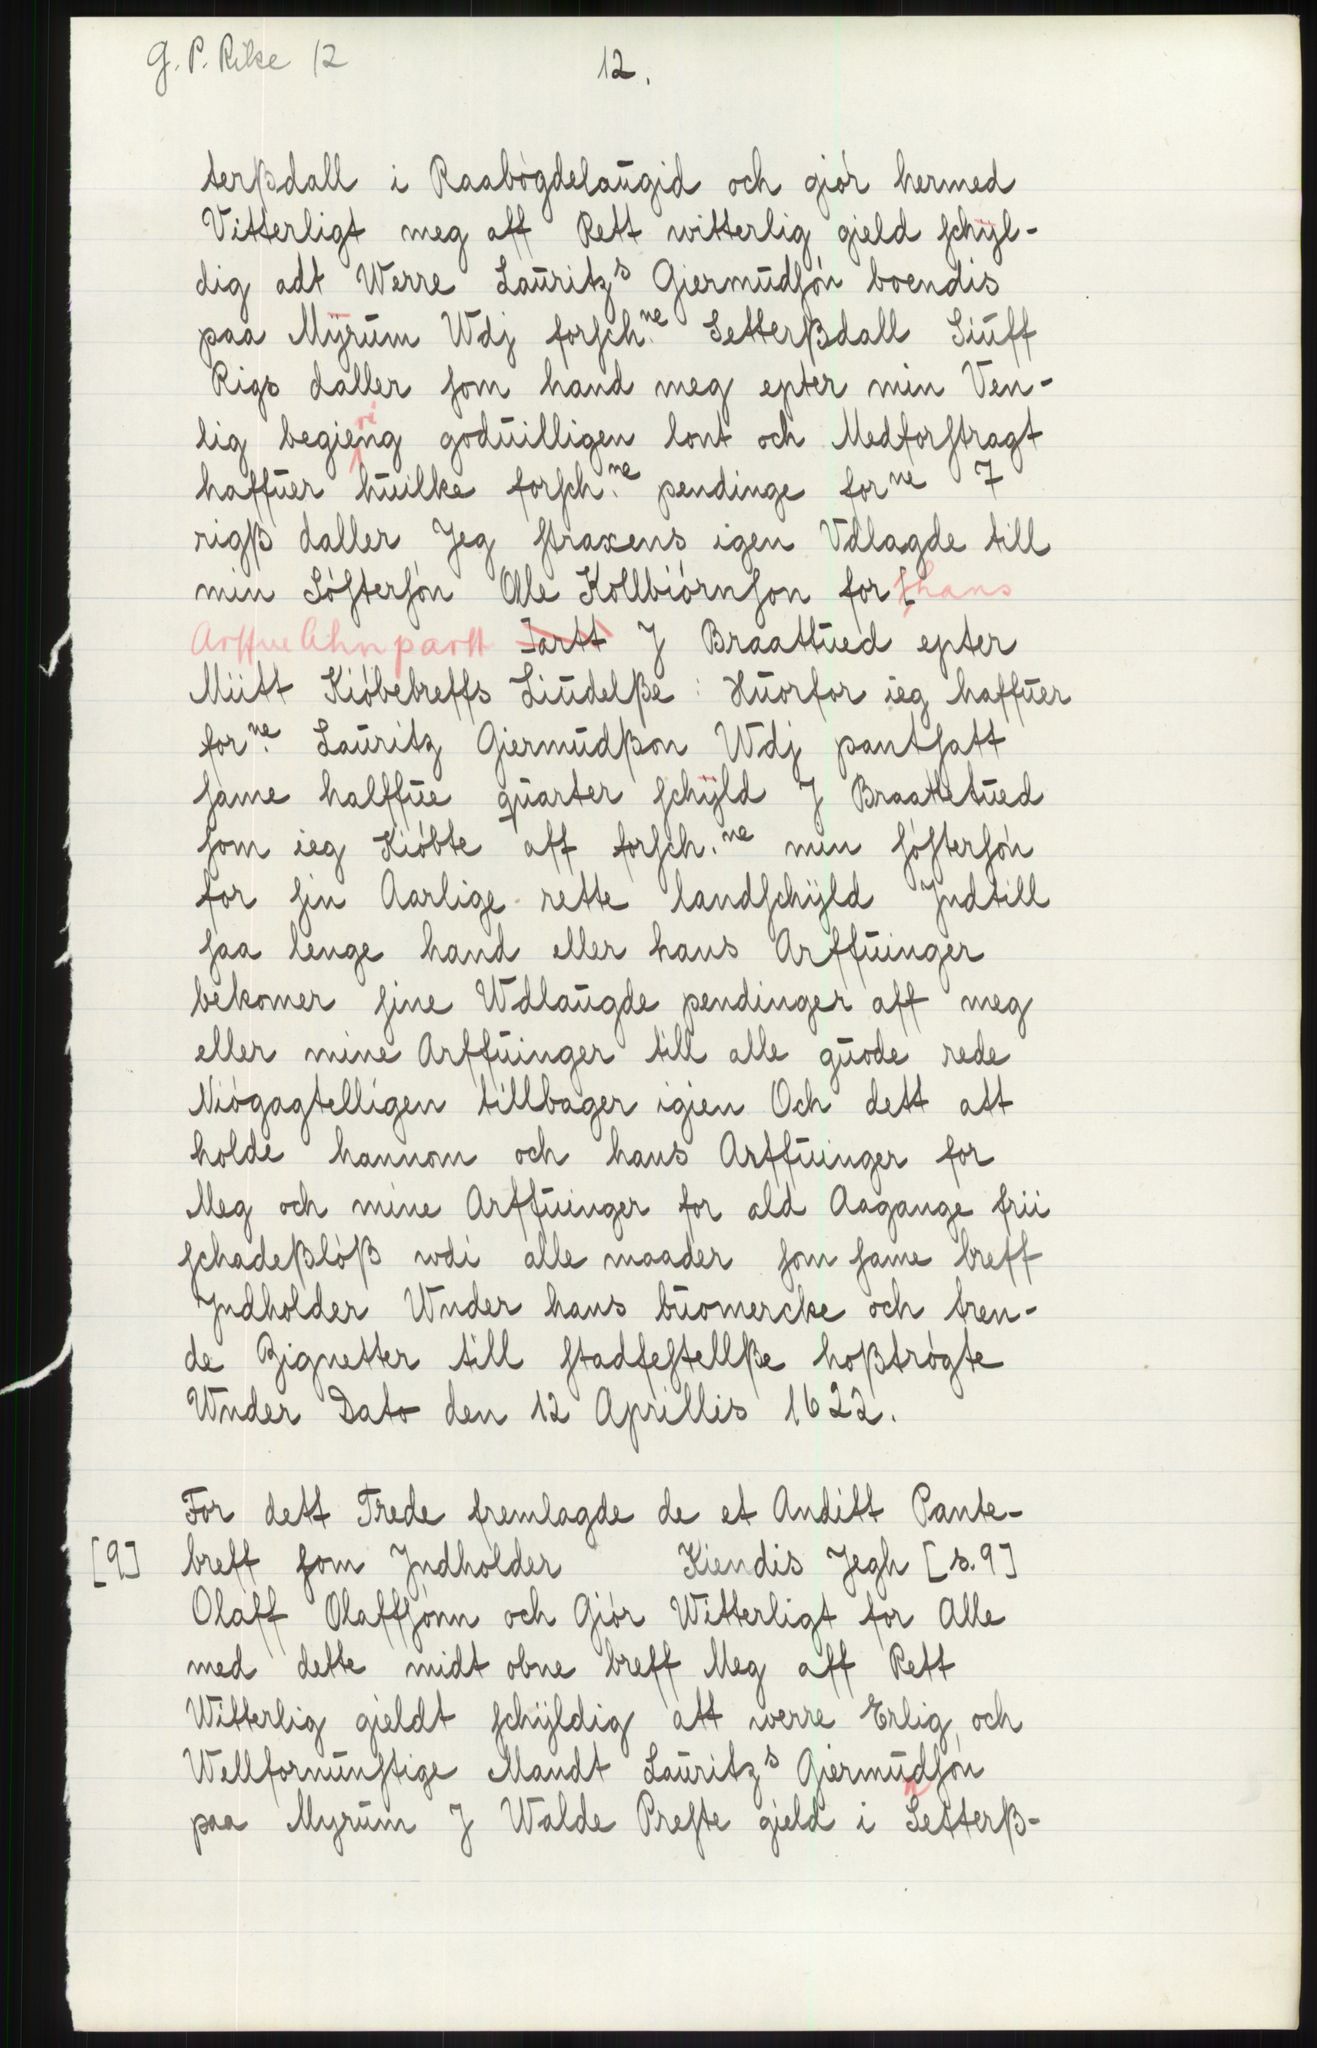 G. P. Rike 12
12.
terßdall i Raabøgdelaugid och giør hermed
Vitterligt meg aff Rett witterlig gield schÿl-
dig adt Werre Lauritzs Giermudsøn boendis
paa Mÿrum Wdj forschne Setterßdall Siuff
Rigs daller som hand meg epter min Ven-
lig begiering goduilligen lont och Medforstragt
haffuer huilke forsch.ne pendinge forne 7
rigß daller Jeg straxens igen Vdlagde till
min Søstersøn Olle Kollbiørnson for hans
Arffue Ahnpartt Jartt J Braatued epter
Miitt Kiøbebreffs Liudelße: Huorfor ieg haffuer
forne Lauritz Giermudßon Wdj pantsatt
same halffue quarter schÿld J Braattetued
som ieg Kiøbte aff forsch.ne min søstersøn
for sin Aarlige rette landschÿld Jndtill
saa lenge hand eller hans Arffuinger
bekomer sine Wdlaugde pendinger aff meg
eller mine Arffuinger till alle guode rede
Niøgagtelligen tillbager igien Och dett att
holde hannom och hans Arffuinger for
Meg och mine Arffuinger for ald Aagange frii
schadeßløß wdi alle maader som same breff
Jndholder Wnder hans buomercke och tren-
de Zignetter till stadfestellße hoßtrøgte
Wnder Dato den 12 Aprillis 1622.
For dett Trede fremlagde de et Anditt Pante-
[9] breff som Jndholder Kiendis Jegh [s. 9]
Olaff Olaffsønn och Giør Witterligt for Alle
med dette midt obne breff Meg aff Rett
Witterlig gieldt schÿldig att werre Erlig och
Wellfornunstige Mandt Lauritzs Giermudsøn
paa Myrum J Walde Preste gield i Setterß-